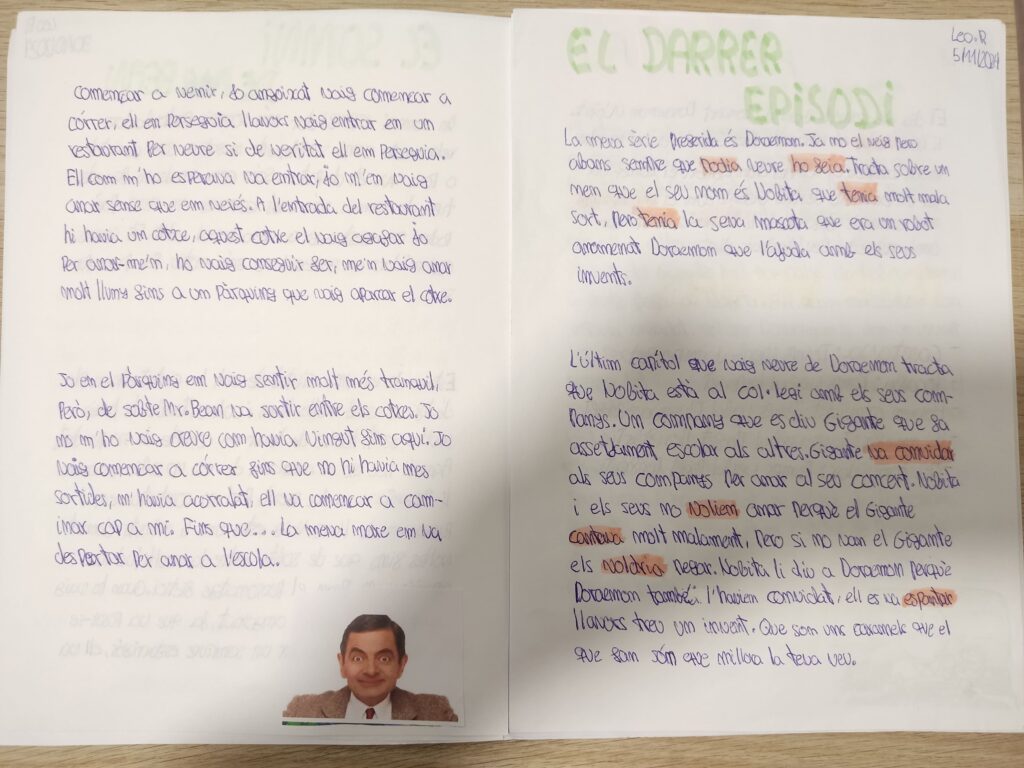 començar a venir, Jo angoixat vaig començar a
córrer, ell em Perseguia llavors vaig entrar en un
restaurant Per veure si de veritat ell em Perseguia.
Ell com m'ho esperava va entrar, jo m'en vaig
anar sense que em veiés. A l'entrada del restaurant
hi havia un cotxe, aquest cotxe el vaig agafar jo
Per anar-me'm, ho vaig conseguir fer, me'n vaig anar
molt lluny fins a un Pàrquing que vaig aparcar el cotxe.
Jo en el Pàrquing em vaig sentir molt més tranquil,
Però, de sobte Mr. Bean va sortir entre els cotxes. Jo
no m'ho vaig creure com havia vingut fins aquí. Jo
vaig començar a córrer fins que no hi havia mes
sortides, m'havia acorralat, ell va començar a cam-
inar cap a mi. Fins que... La meva mare em va
despertar Per anar a l'escola.
EL DARRER
EPiSODi
Leo.R
5/11/2024
La meva sèrie Preferida és Doraemon. Ja no el veig pero
abans sempre que Podia veure ho feia. Tracta sobre un
nen que el seu nom és Nobita que tenia molt mala
sort, Pero tenia la seva mascota que era un robot
anomenat Doraemon que l'ajuda amb els seus
invents.
L'últim capítol que vaig veure de Doraemon tracta
que Nobita està al col·legi amb els seus com-
Panys. Un company que es diu Gigante que fa
assetjament escolar als altres. Gigante va convidar
als seus companys Per anar al seu concert. Nobita
i els seus no volien anar Perquè el Gigante
cantava molt malament, Pero si no van el Gigante
els voldria Pegar. Nobita li diu a Doraemon Perquè
Doraemon també l'havien convidat, ell es va espantar
llavors treu un invent. Que som uns caramels que el
que fan són que millora la teva veu.